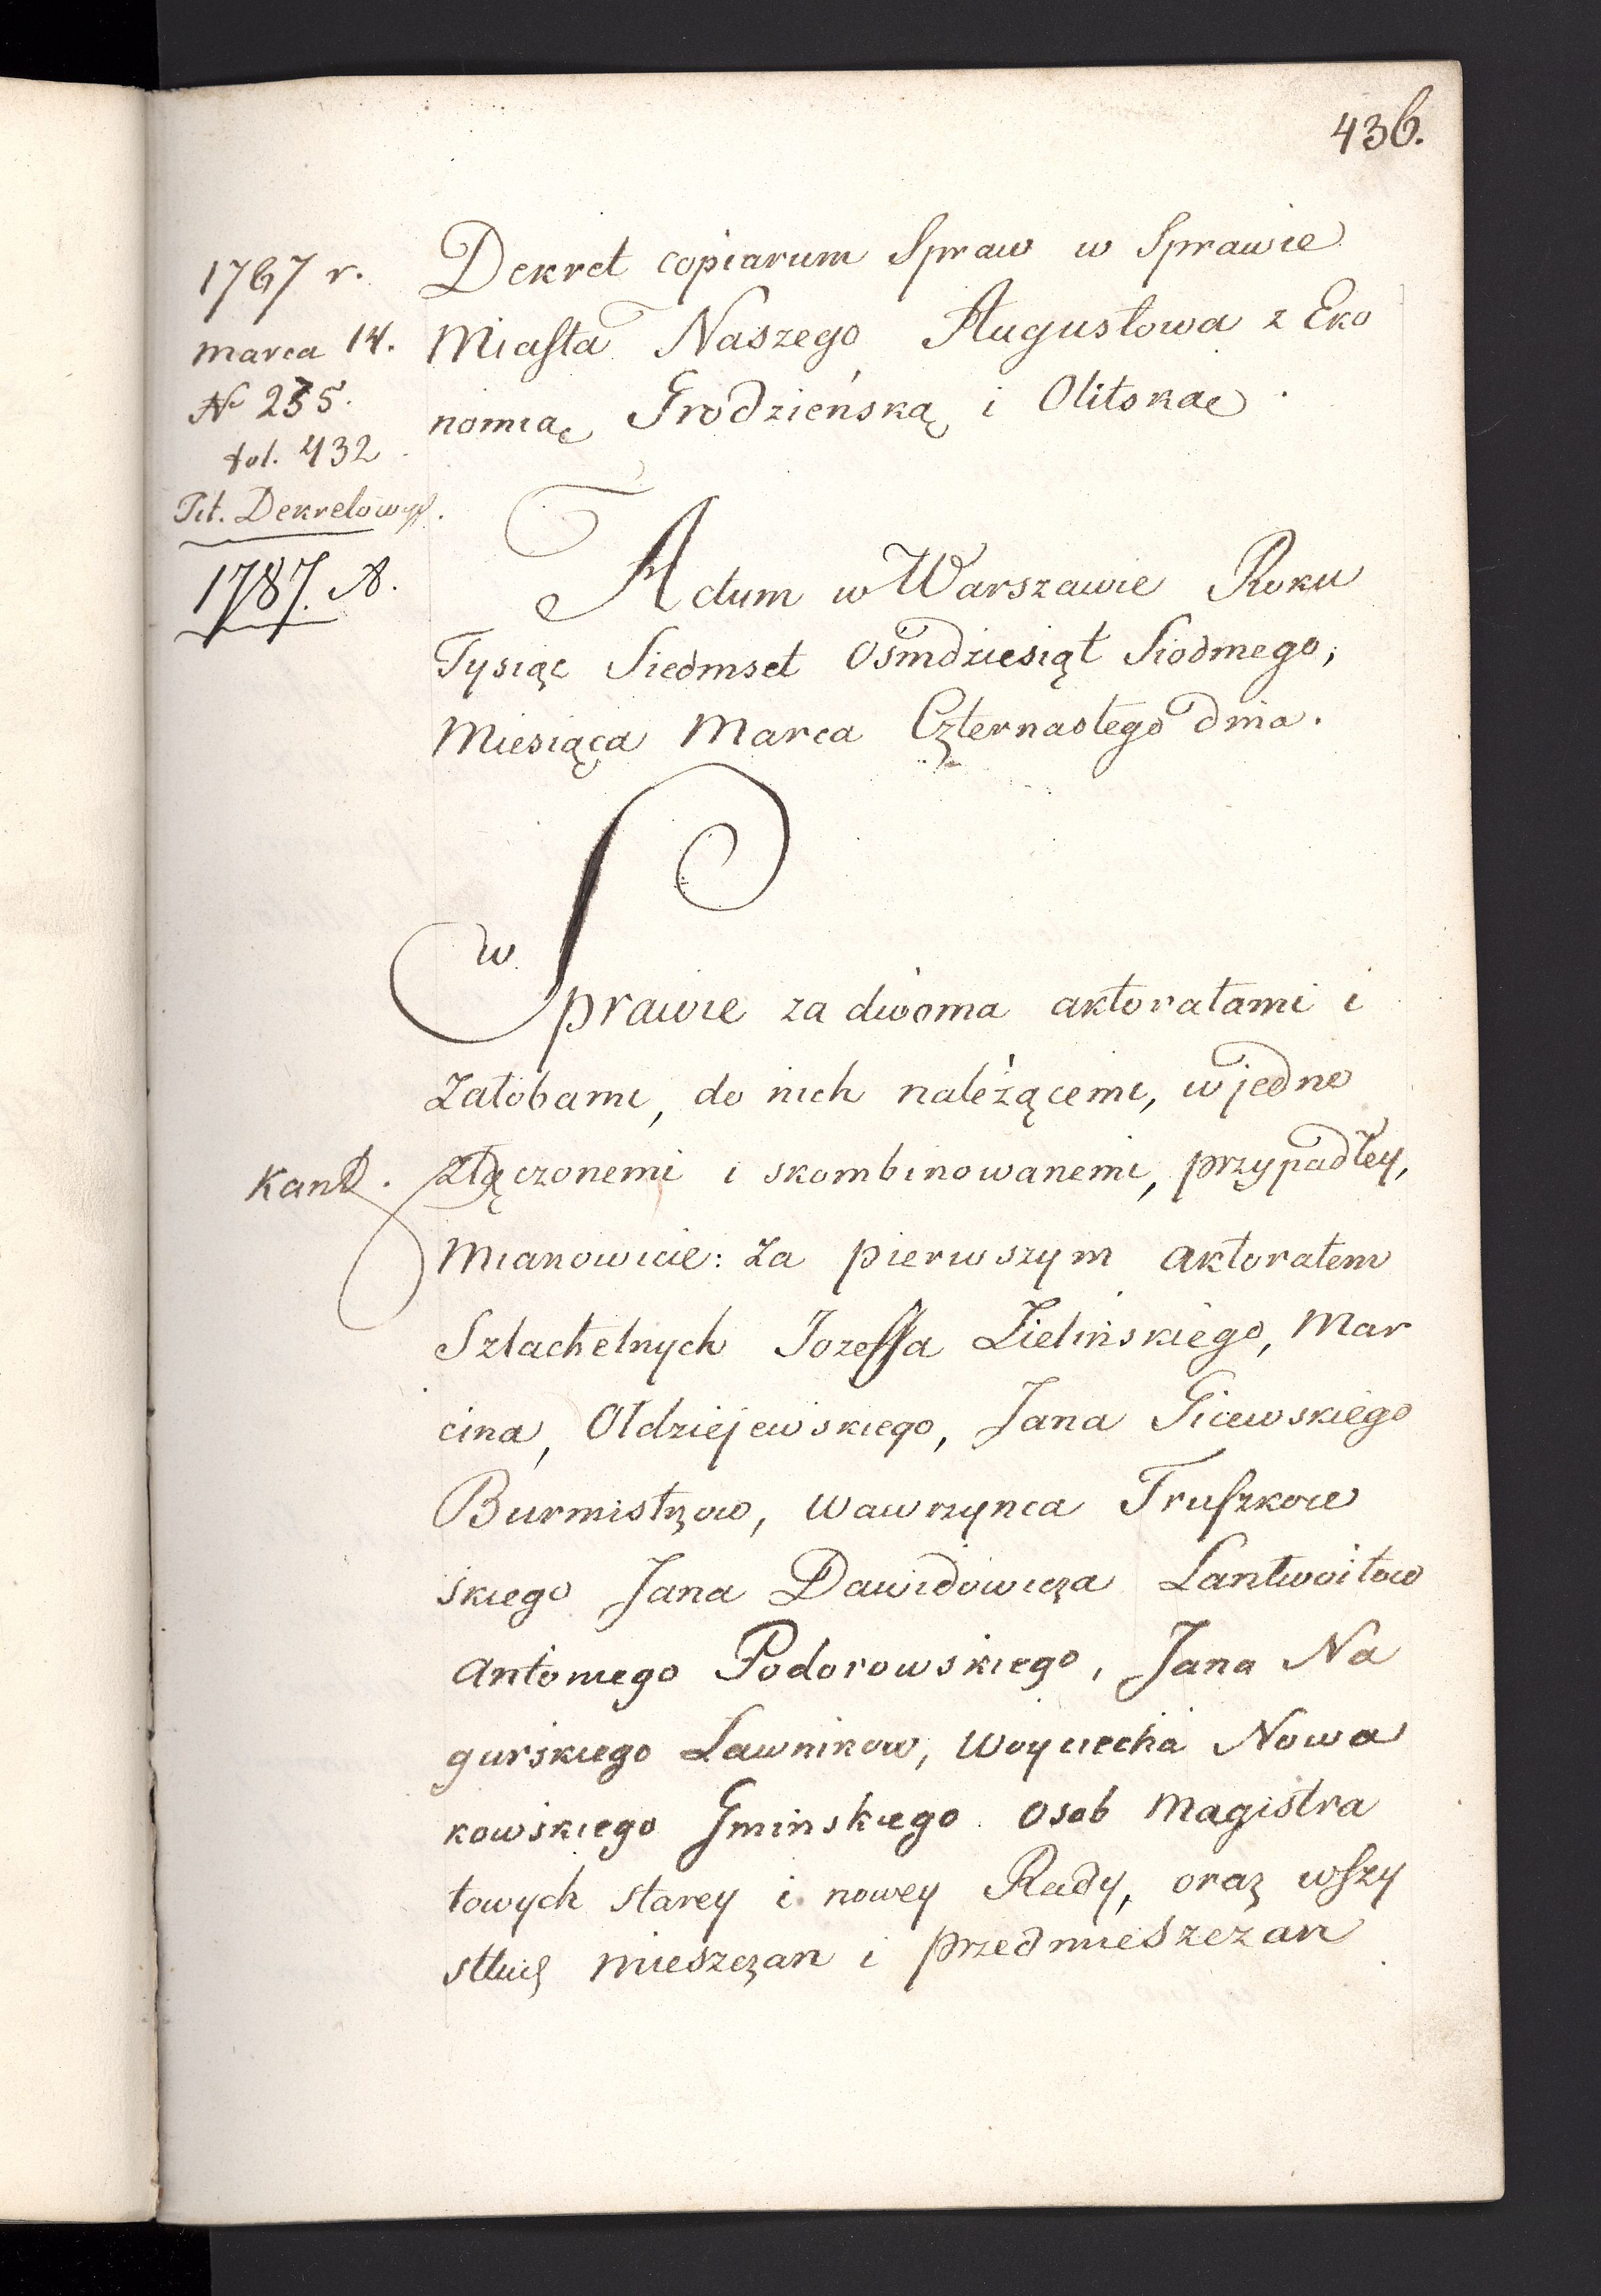 436.
1767 r.
Marca 14.
N 235.
fol. 432
Tit. Dekretowy.
1787. A.
Dekret copiarum Spraw w Sprawie
Miasta Naszego Augustowa z Eko
nomią Grodzieńską i Olitską
Actum w Warszawie Roku
Tysiąc Siedmset Ośmdziesiąt Siodmego,
Miesiąca Marca Czternastego dnia.
w Sprawie za dwoma aktoratami i
Załobami, do nich należącemi, w jedno
Kand. złączonemi i skombinowanemi, przypadłey,
Mianowicie: Za pierwszym aktoratem
Szlachetnych Jozeffa Zielińskiego, Mar
cina, Oldziejewskiego, Jana Gicewskiego
Burmistrzow, Wawrzynca Truszkow
skiego Jana Dawidowicza Lantwoitow
Antoniego Podorowskiego, Jana Na
gurskiego Ławnikow, Woyciecha Nowa
kowskiego Gminskiego Osob Magistra
towych starey i nowey Rady, oraz wszy
stkich mieszczan i przedmieszczan